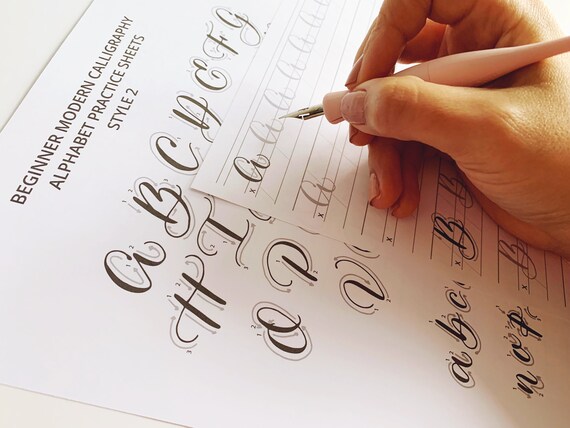 BEGINNER MODERN CALLIGRAPHY
ALPHABET PRACTICE SHEETS
STYLE 2
a B C D E F G
H I
O P V
a a a a a a a
x a
x a
x B B
x B
a b c
n o p